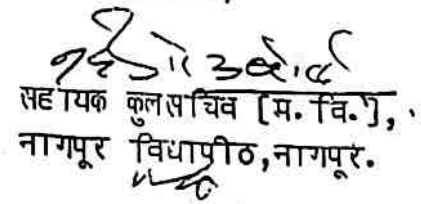 सहायक कुलसचिव [म. वि.],
नागपूर विद्यापीठ, नागपूर.